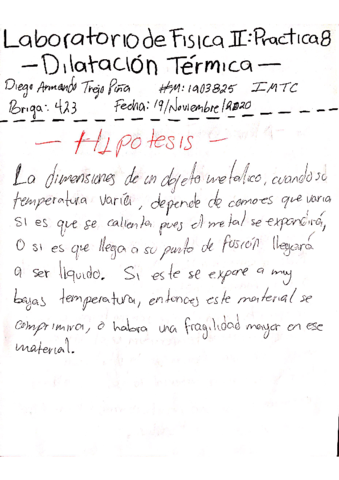 Laboratorio de Fisica II: Practica 8
— Dilatación Térmica —
Diego Armando Trejo Piña #M: 1903825 IMTC
Briga: 423 Fecha: 19/Noviembre/2020
— HIpotesis —
La dimensiones de un objeto metalico, cuando su
temperatura varia, depende de como es que varia
si es que se calienta pues el metal se expandirá,
O si es que llega a su punto de fusión llegará
a ser líquido. Si este se expone a muy
bajas temperatura, entonces este material se
comprimira, o habra una fragilidad mayor en ese
material.